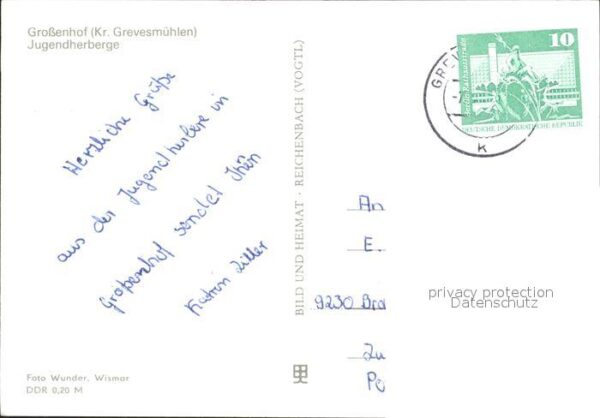 Großenhof (Kr. Grevesmühlen)
Jugendherberge
Herzliche Grüße
aus der Jugendherberge in
Großenhof sendet Ihnen
Katrin Ziller
Foto Wunder, Wismar
DDR 0,20 M
BILD UND HEIMAT · REICHENBACH (VOGTL)
GREV
k
10
Berlin · Rathausstraße
DEUTSCHE DEMOKRATISCHE REPUBLIK
An
E.
9230 Bra
Zu
Po
privacy protection
Datenschutz